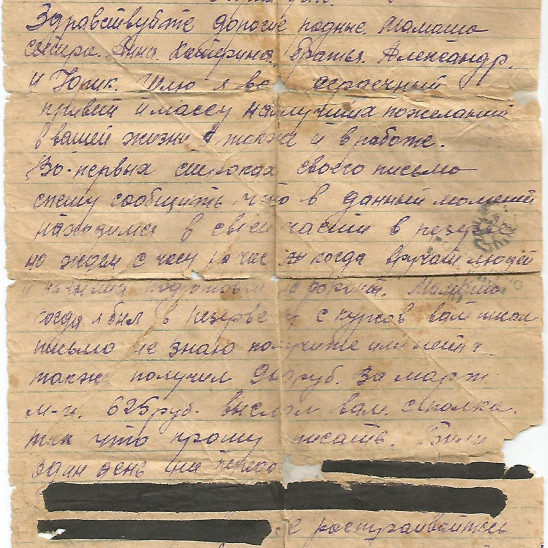 Здравствуйте дорогие родные Мамаша
сестра Анна. Катерина братья. Александр
и Юрик. Шлю я ва сердечный
привет и массу наилучших пожеланий
в вашей жизни а также и в работе.
Во-первых строках своего письмо
спешу сообщить что в данный момент
находимся в своей части в резерве
но ждем с часу на час когда вручат людей
и начнем подготовку Мамаша
когда я был в резерве с курсов вам писал
письмо не знаю получите или нет
также получил руб. за март
м-ц. 625 руб. выслал вам. с полка.
так что прошу писать. Были
один день на
не расстраивайтесь